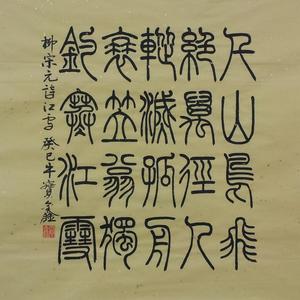 千山鳥飛
絕萬徑人
蹤滅孤舟
蓑笠翁獨
釣寒江雪
柳宗元詩江雪 癸巳